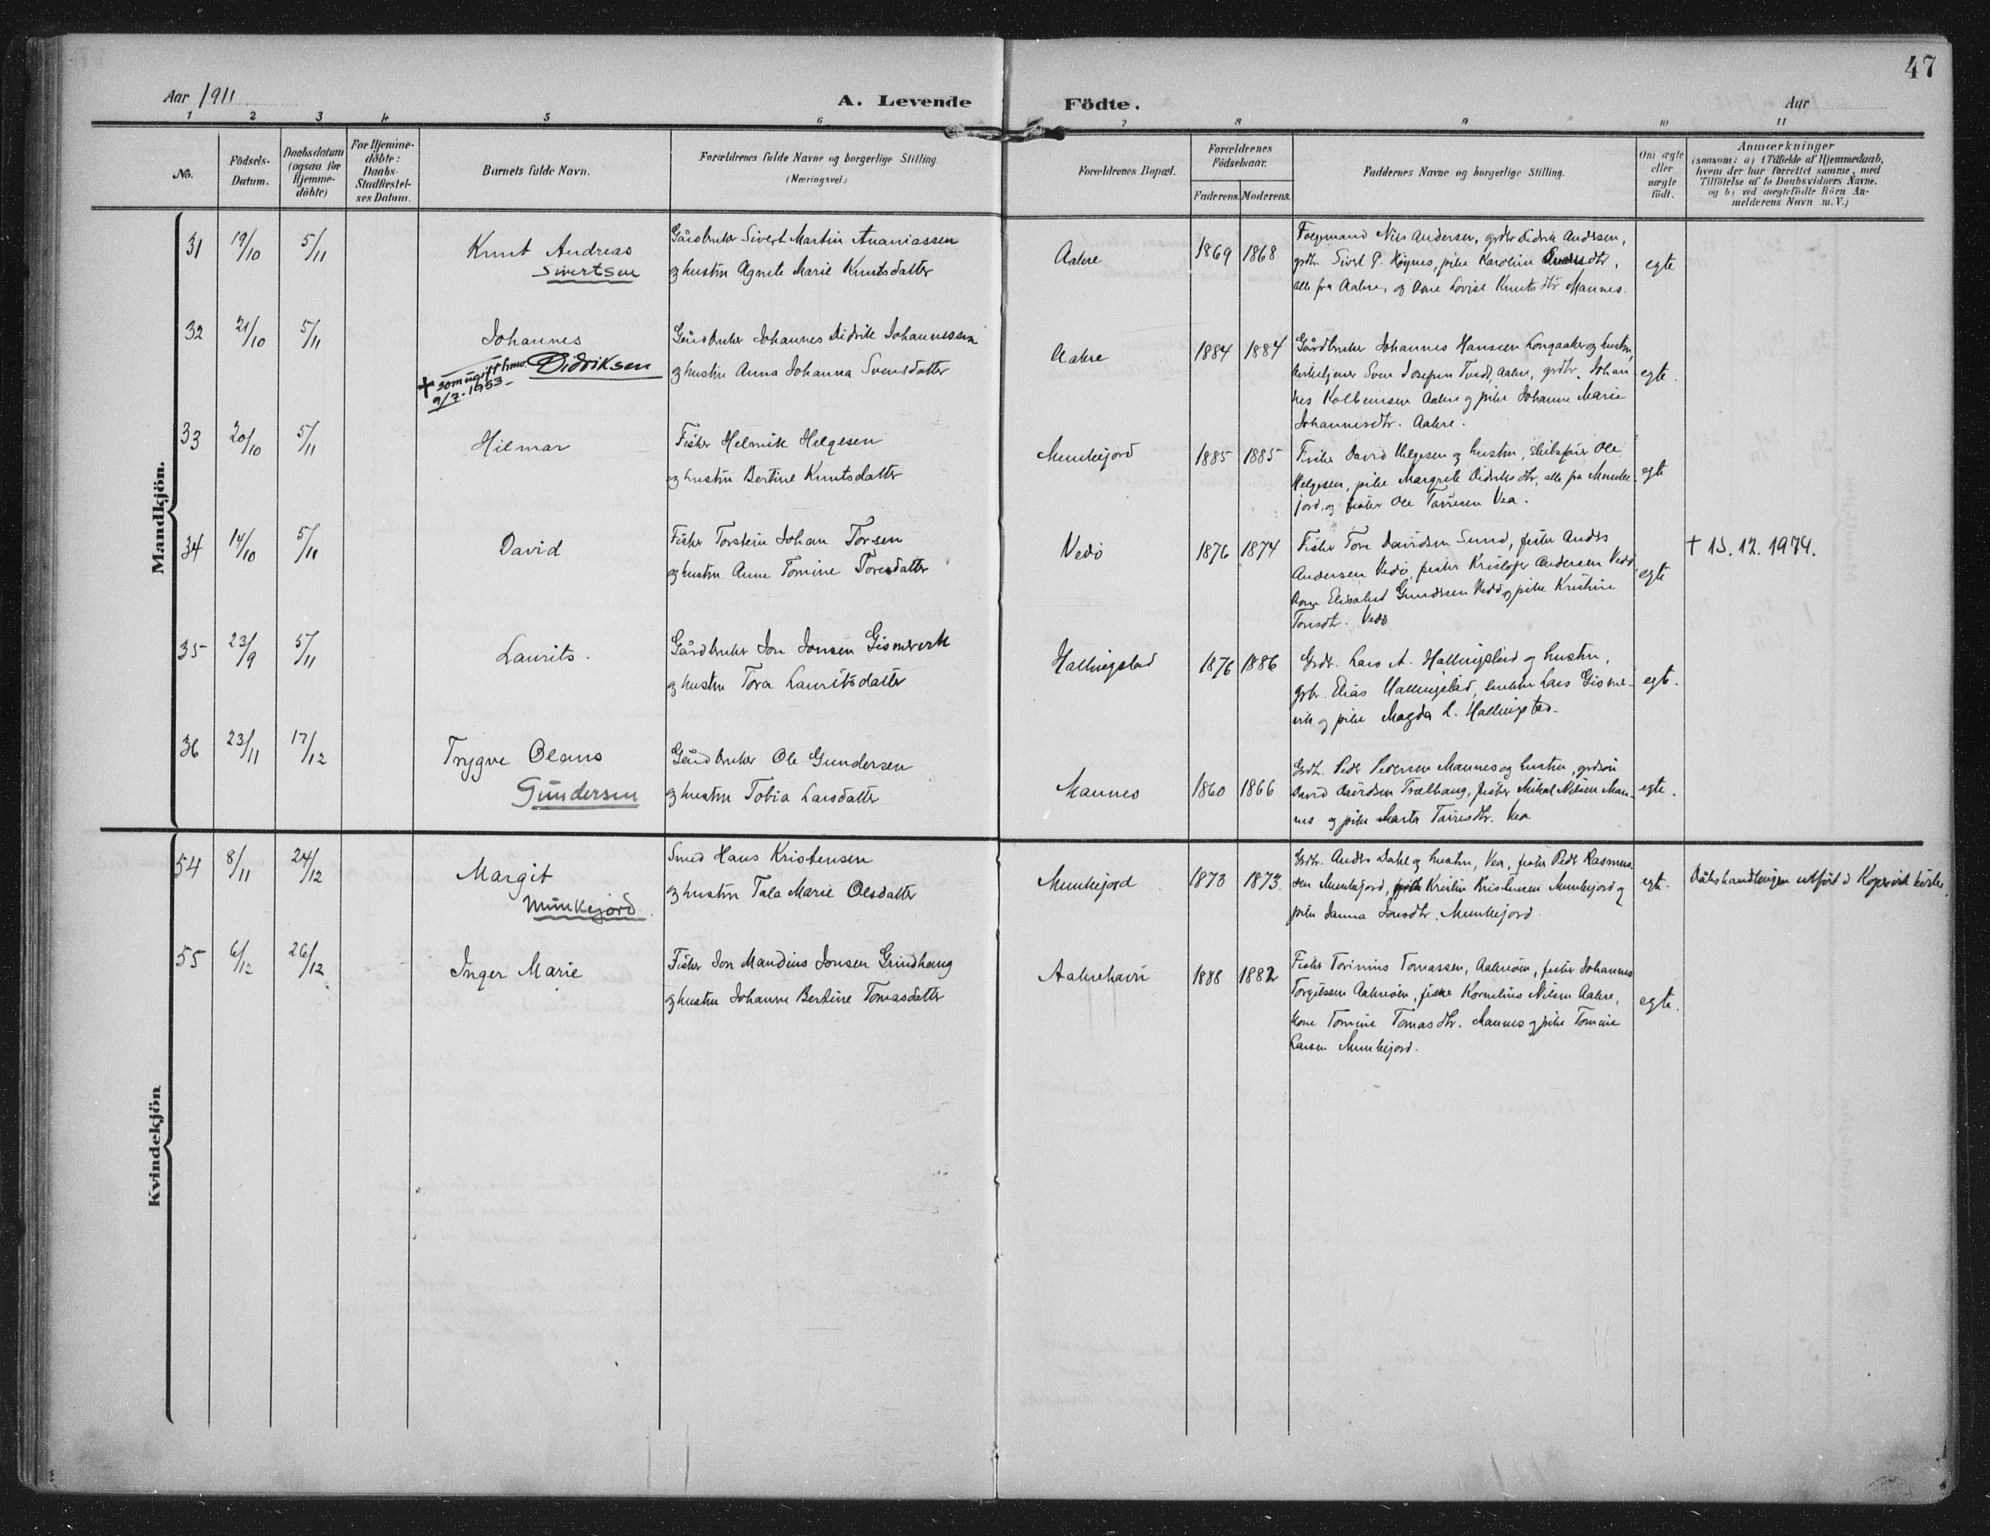 47
Aar 1911
A. Levende Födte.
Aar
1 2 3 4 5 6 7 8 9 10 11
No.
Födsels-
Datum.
Daabsdatum
(ogsaa for
Hjemme-
döbte)
For Hjemme-
döbte:
Daabs-
Stadfæstel-
ses Datum.
Barnets fulde Navn.
Forældrenes fulde Navne og borgerlige Stilling
(Næringsvei.)
Forældrenes Bopæl.
Forældrenes
Födselsaar.
Faderens. Moderens.
Faddernes Navne og borgerlige Stilling.
Om ægte
eller
uægte
födt.
Anmærkninger
(saasom: a) i Tilfælde af Hjemmedaab,
hvem der har forrettet samme, med
Tilföielse af to Daabsvidners Navne,
og b) ved uægtefödte Börn An-
melderens Navn m. V.)
Mandkjön.
31 19/10 5/11
Knut Andreas
Sivertsen
Gårdbruker Sivert Martin Ananiassen
og hustru Agnete Marie Knutsdatter
Aakre
1869 1868
Nils Andersen, grdbr Didrik Andersen,
grdbr. Sivert P. Høynes, pike Karoline
alle fra Aakre, og Lovise Knuts dtr Mannes.
egte
32 21/10 5/11
Johannes
Didriksen
+ som ugift
9/7-1953-
Gårdbruker Johannes Didrik Johannessen
og hustru Anna Johanna Svensdatter
Aakre
1884 1884
Gårdbruker Johannes Hanssen Longaaker og hustru,
kirketjener Sven Josefsen Tveit, Aakre, grdbr. Johan-
nes Kolbensen Aakre og pike Johanne Marie
Johannesdtr. Aakre.
egte.
33 20/10 5/11
Hilmar
Fisker Helmik Helgesen
og hustru Bertine Knutsdatter
Munkejord
1885 1885
Fisker David Helgesen og hustru, Ole
Helgesen, pike Margrete Didriksdtr, alle fra Munke-
jord, og fisker Ole Vea.
egte
34 14/10 5/11
David
Fisker Torstein Johan Torsen
og hustru Anne Tomine Toresdatter
Vedö
1876 1874
Fisker Tore Davidsen Sund, fisker Anders
Andersen Vedö, fisker Kristofer Andersen Vedö,
Elisabet Gundersen Vedö og pike Kristine
Toresdtr. Vedö
egte
† 15.12.1974.
35 23/9 5/11
Laurits.
Gårdbruker Jon Jonsen Gismervik
og hustru Tora Lauritsdatter
Hallingstad
1876 1886
Grdbr. Lars A. Hallingstad og hustru,
grbr. Elias Hallingstad, Lars Gismer-
vik og pike Magda L. Hallingstad.
egte.
36 23/11 17/12
Trygve Olaus
Gundersen
Gårdbruker Ole Gundersen
og hustru Tobia Larsdatter
Mannes
1860 1866
Grdbr. Peder Pedersen Mannes og hustru,
David Davidsen Trælhaug, fisker Mikal Nilsen Man-
nes og pike Marta Vea
egte.
Kvindekjön
54 8/11 24/12
Margit
Munkejord.
Smed Hans Kristensen
og hustru Tala Marie Olsdatter
Munkejord
1873 1873.
Grdbr. Anders Dahl og hustru, Vea, fisker Peder Rasmus-
sen Munkejord, Kristin Kristensen Munkejord og
pike Janna Jonsdtr. Munkejord.
egte.
Dåbshandlingen utført i Kopervik kirke.
55 6/12 26/12
Inger Marie
Fisker Jon Mandius Jonsen Grindhaug
og hustru Johanne Bertine Tomasdatter
Aakrehavn
1888 1882
Fisker Torinius Tomassen, Aakreöen, fisker Johannes
Torgilssen Aakreöen, fisker Kornelius Nilsen Aakre,
kone Tomine Tomasdtr. Mannes og pike Tomine
Larsen Munkejord.
egte.